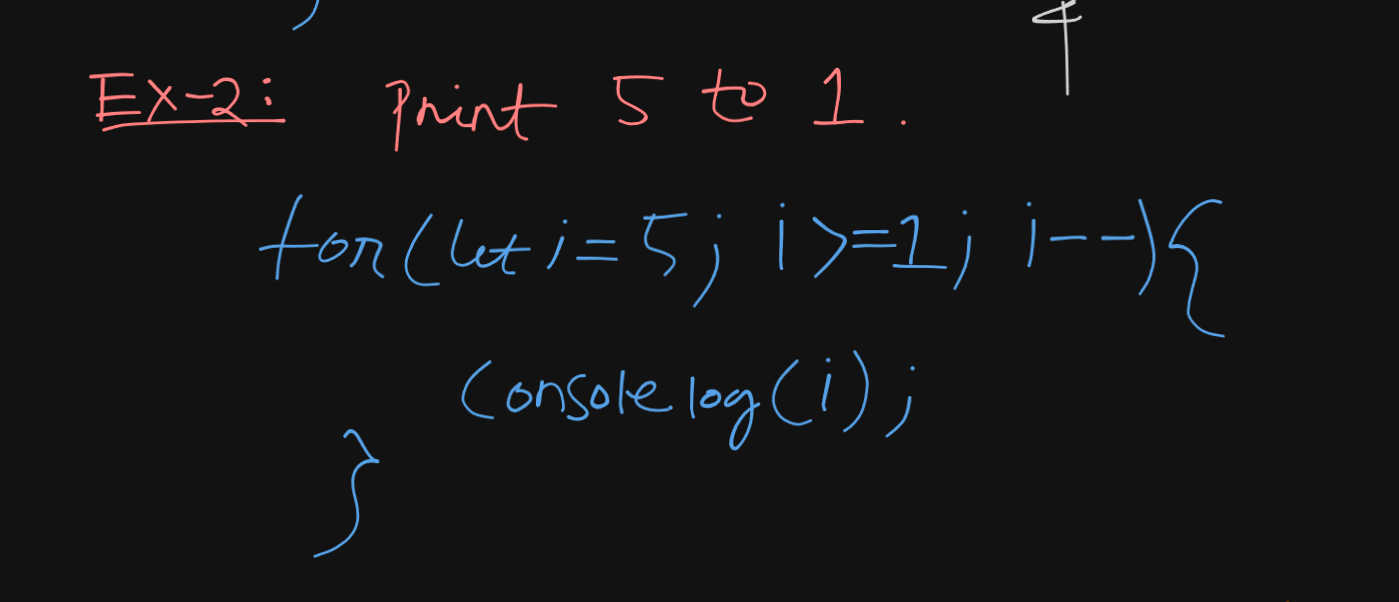 Ex-2: Print 5 to 1.
for(let i=5; i>=1; i--){
console.log(i);
}